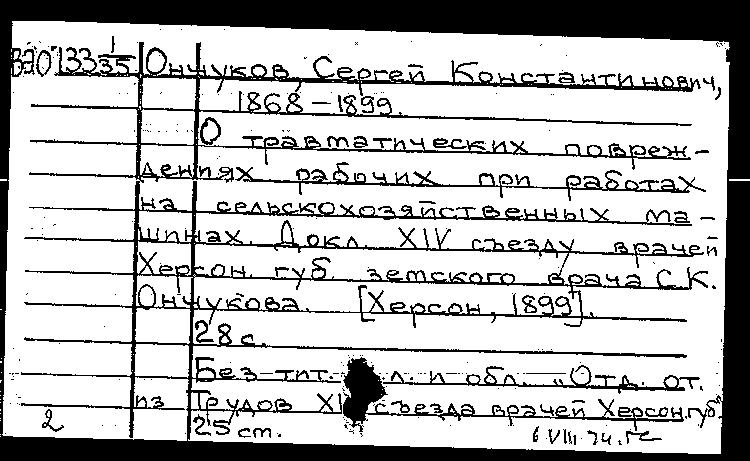 В70133 1/35 Ончуков, Сергей Константинович,
1868-1899.
О травматических повреж-
дениях рабочих при работах
на сельскохозяйственных ма-
шинах. Докл. XIV съезду врачей
Херсон. губ. земского врача С.К.
Ончукова. [Херсон, 1899].
28 с.
Без тит. л. и обл. „Отд. от.
из Трудов съезда врачей Херсон. губ."
2 25 ст.